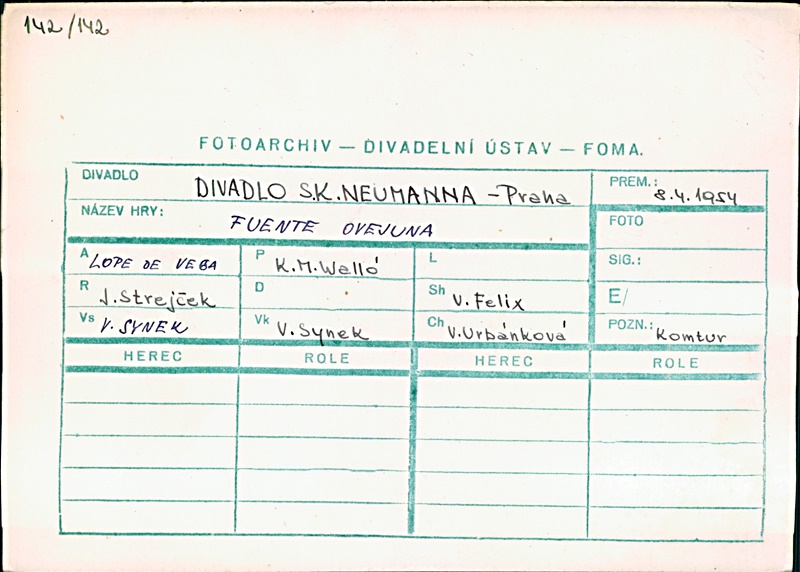 142/142
FOTOARCHIV — DIVADELNÍ ÚSTAV — FOMA.
DIVADLO DIVADLO S.K. NEUMANNA - Praha PREM.: 8.4.1954
NÁZEV HRY: FUENTE OVEJUNA FOTO
A LOPE DE VEGA P K.M. Walló L SIG.:
R J. Strejček D Sh V. Felix E/
Vs V. SYNEK Vk V. Synek Ch V. Urbánková POZN.: Komtur
HEREC ROLE HEREC ROLE